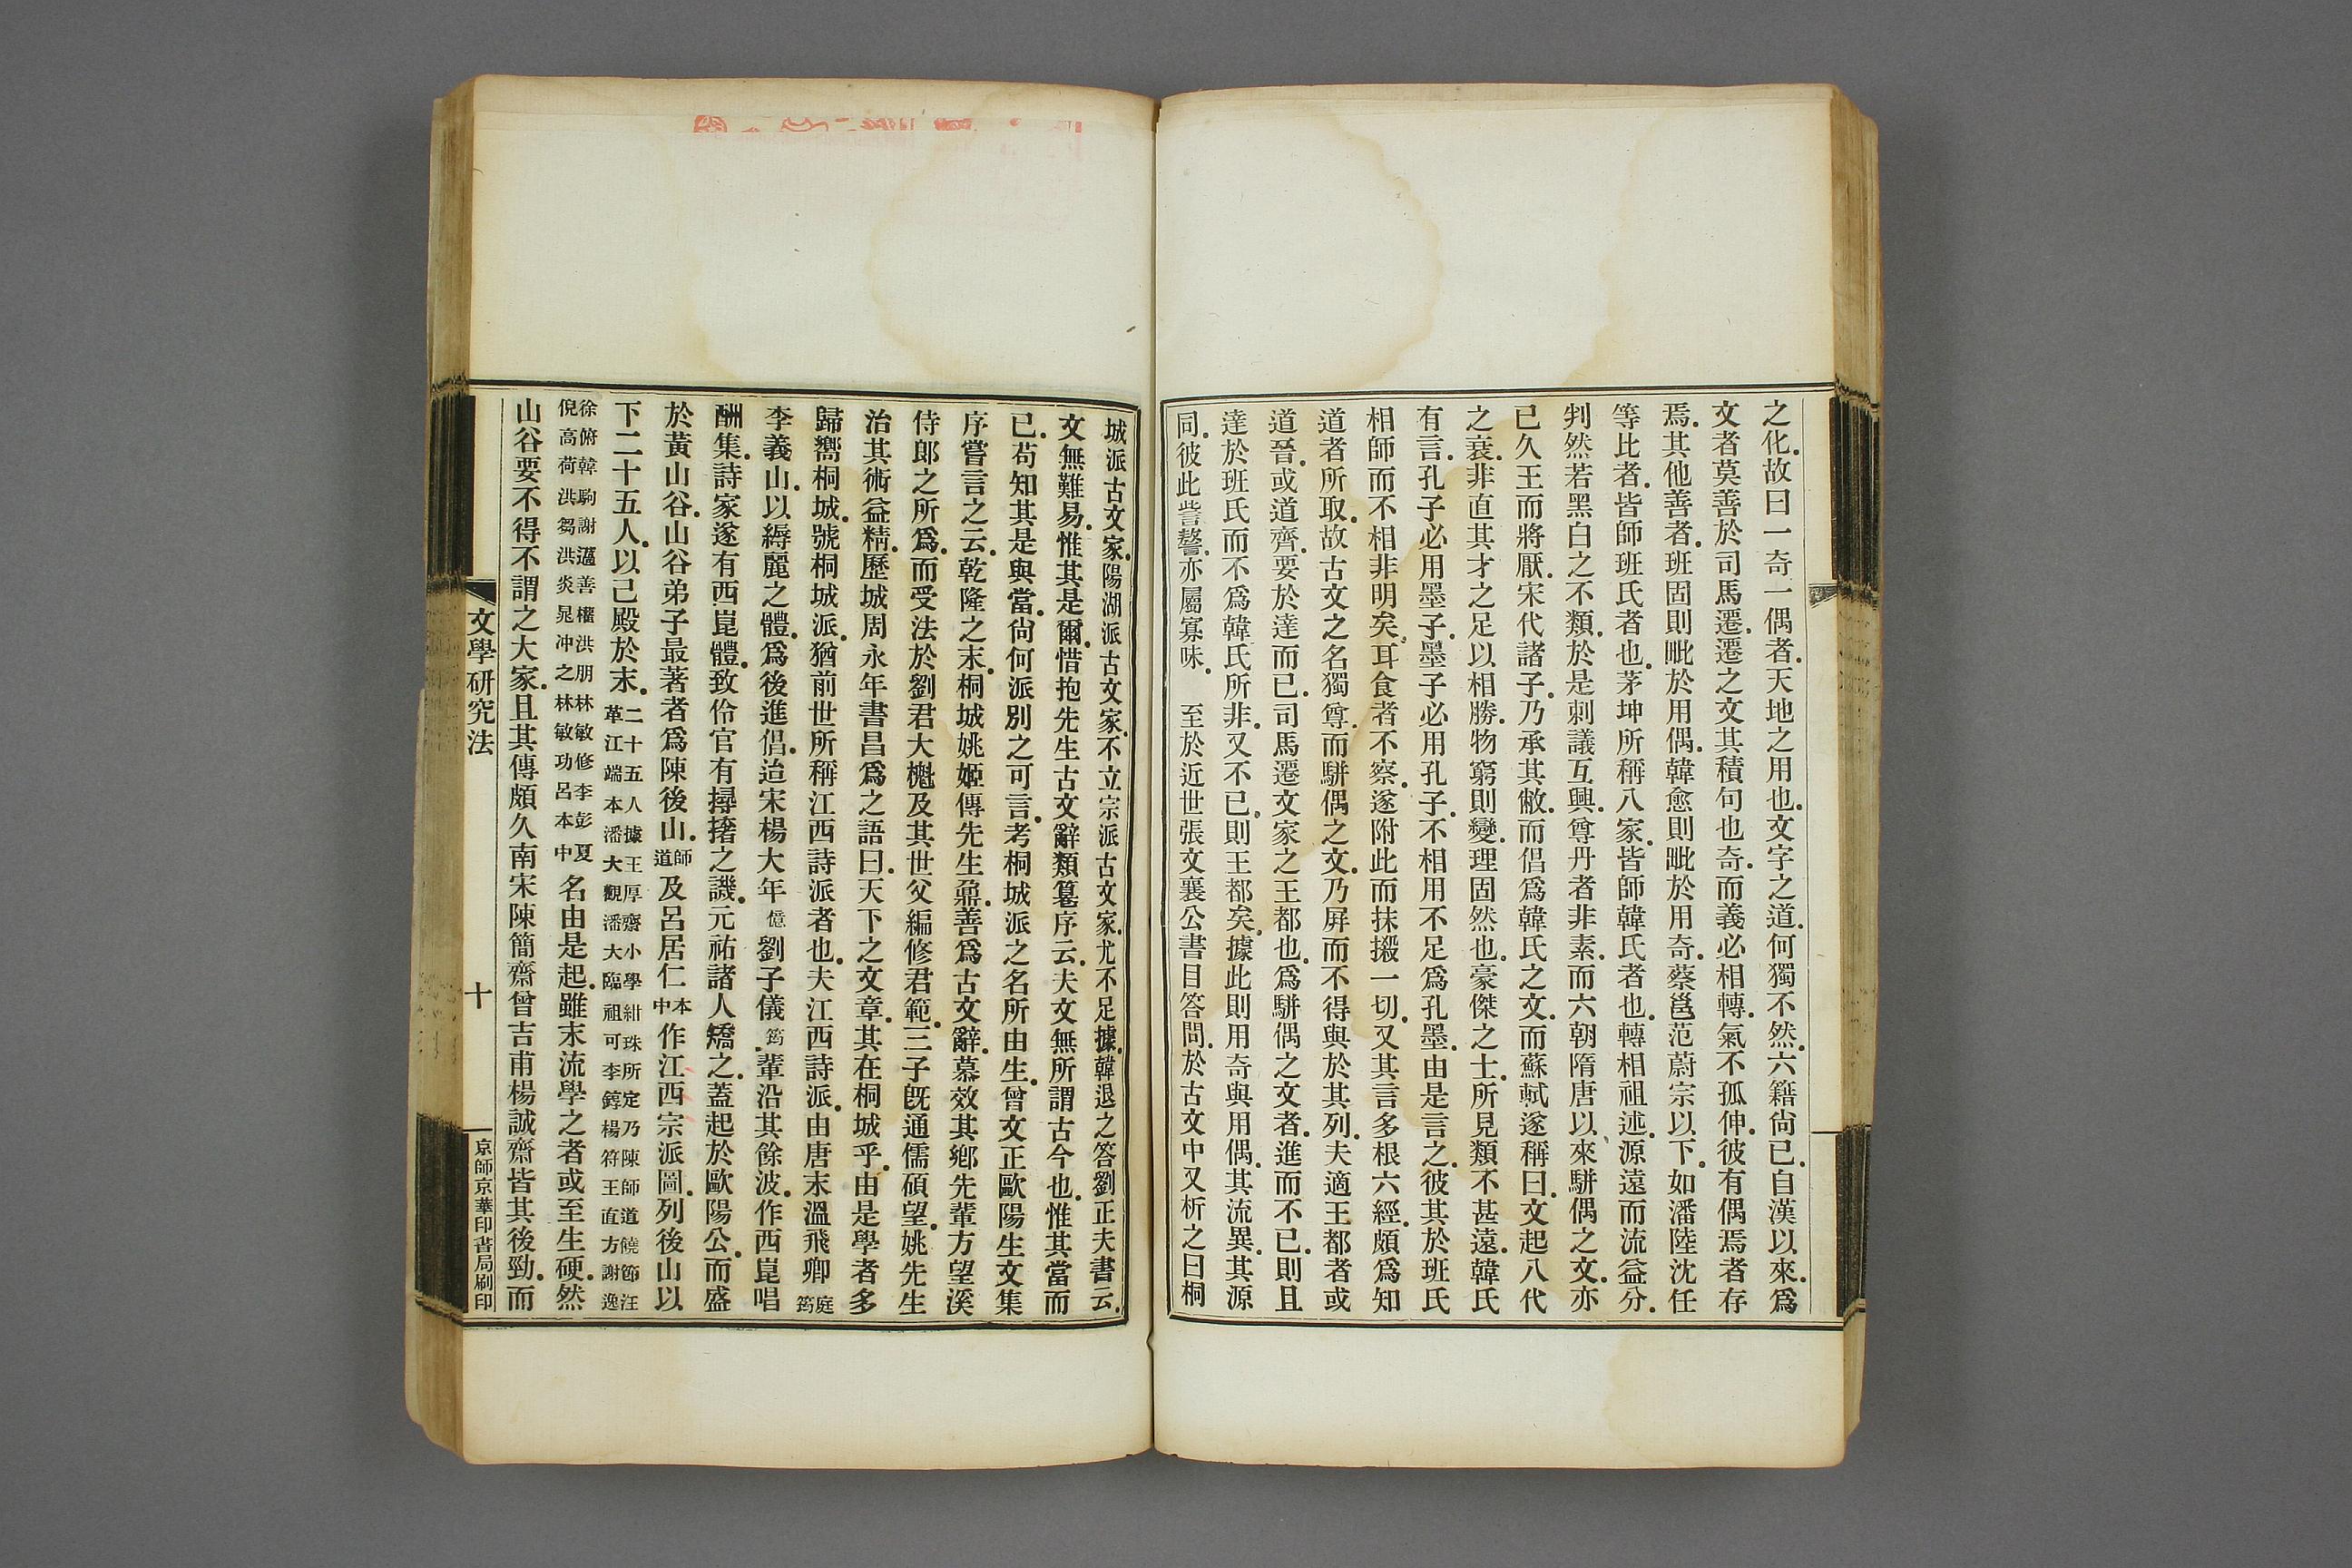 之化。故曰一奇一偶者。天地之用也。文字之道。何獨不然。六籍尙已。自漢以來。爲
文者莫善於司馬遷。遷之文其積句也奇。而義必相轉。氣不孤伸。彼有偶焉者存
焉。其他善者。班固則毗於用偶。韓愈則毗於用奇。蔡邕范蔚宗以下。如潘陸沈任
等比者。皆師班氏者也。茅坤所稱八家。皆師韓氏者也。轉相祖述。源遠而流益分。
判然若黑白之不類。於是刺議互興。尊丹者非素。而六朝隋唐以來。駢偶之文。亦
已久王而將厭。宋代諸子。乃承其敝。而倡爲韓氏之文。而蘇軾遂稱曰。文起八代
之衰。非直其才之足以相勝。物窮則變。理固然也。豪傑之士。所見類不甚遠。韓氏
有言。孔子必用墨子。墨子必用孔子。不相用不足爲孔墨。由是言之。彼其於班氏
相師而不相非明矣。耳食者不察。遂附此而抹摋一切。又其言多根六經。頗爲知
道者所取。故古文之名獨尊。而駢偶之文。乃屏而不得與於其列。夫適王都者或
道晉。或道齊。要於達而已。司馬遷文家之王都也。爲駢偶之文者。進而不已。則且
達於班氏而不爲韓氏所非。又不已。則王都矣。據此則用奇與用偶。其流異。其源
同。彼此訾謷。亦屬寡味。　至於近世張文襄公書目答問。於古文中又析之曰桐
城派古文家。陽湖派古文家。不立宗派古文家。尤不足據。韓退之答劉正夫書云。
文無難易。惟其是爾。惜抱先生古文辭類篹序云。夫文無所謂古今也。惟其當而
已。苟知其是與當。尙何派別之可言。考桐城派之名所由生。曾文正歐陽生文集
序嘗言之云。乾隆之末。桐城姚姬傳先生鼐。善爲古文辭。慕效其鄉先輩方望溪
侍郎之所爲。而受法於劉君大櫆及其世父編修君範。三子旣通儒碩望。姚先生
治其術益精。歷城周永年書昌爲之語曰。天下之文章。其在桐城乎。由是學者多
歸嚮桐城。號桐城派。猶前世所稱江西詩派者也。夫江西詩派。由唐末溫飛卿庭筠
李義山。以縟麗之體。爲後進倡。迨宋楊大年億劉子儀筠。輩沿其餘波。作西崑唱
酬集。詩家遂有西崑體。致伶官有撏撦之譏。元祐諸人矯之。蓋起於歐陽公。而盛
於黃山谷。山谷弟子最著者爲陳後山。師道及呂居仁本中作江西宗派圖。列後山以
下二十五人。以己殿於末。二十五人據王厚齋小學紺珠所定乃陳師道饒節汪革江端本潘大觀潘大臨祖可李錞楊符王直方謝逸
徐俯韓駒謝薖善權洪朋林敏修李彭夏倪高荷洪芻洪炎晁冲之林敏功呂本中名由是起。雖末流學之者或至生硬。然
山谷要不得不謂之大家。且其傳頗久。南宋陳簡齋曾吉甫楊誠齋皆其後勁。而
文學研究法
十
京師京華印書局刷印